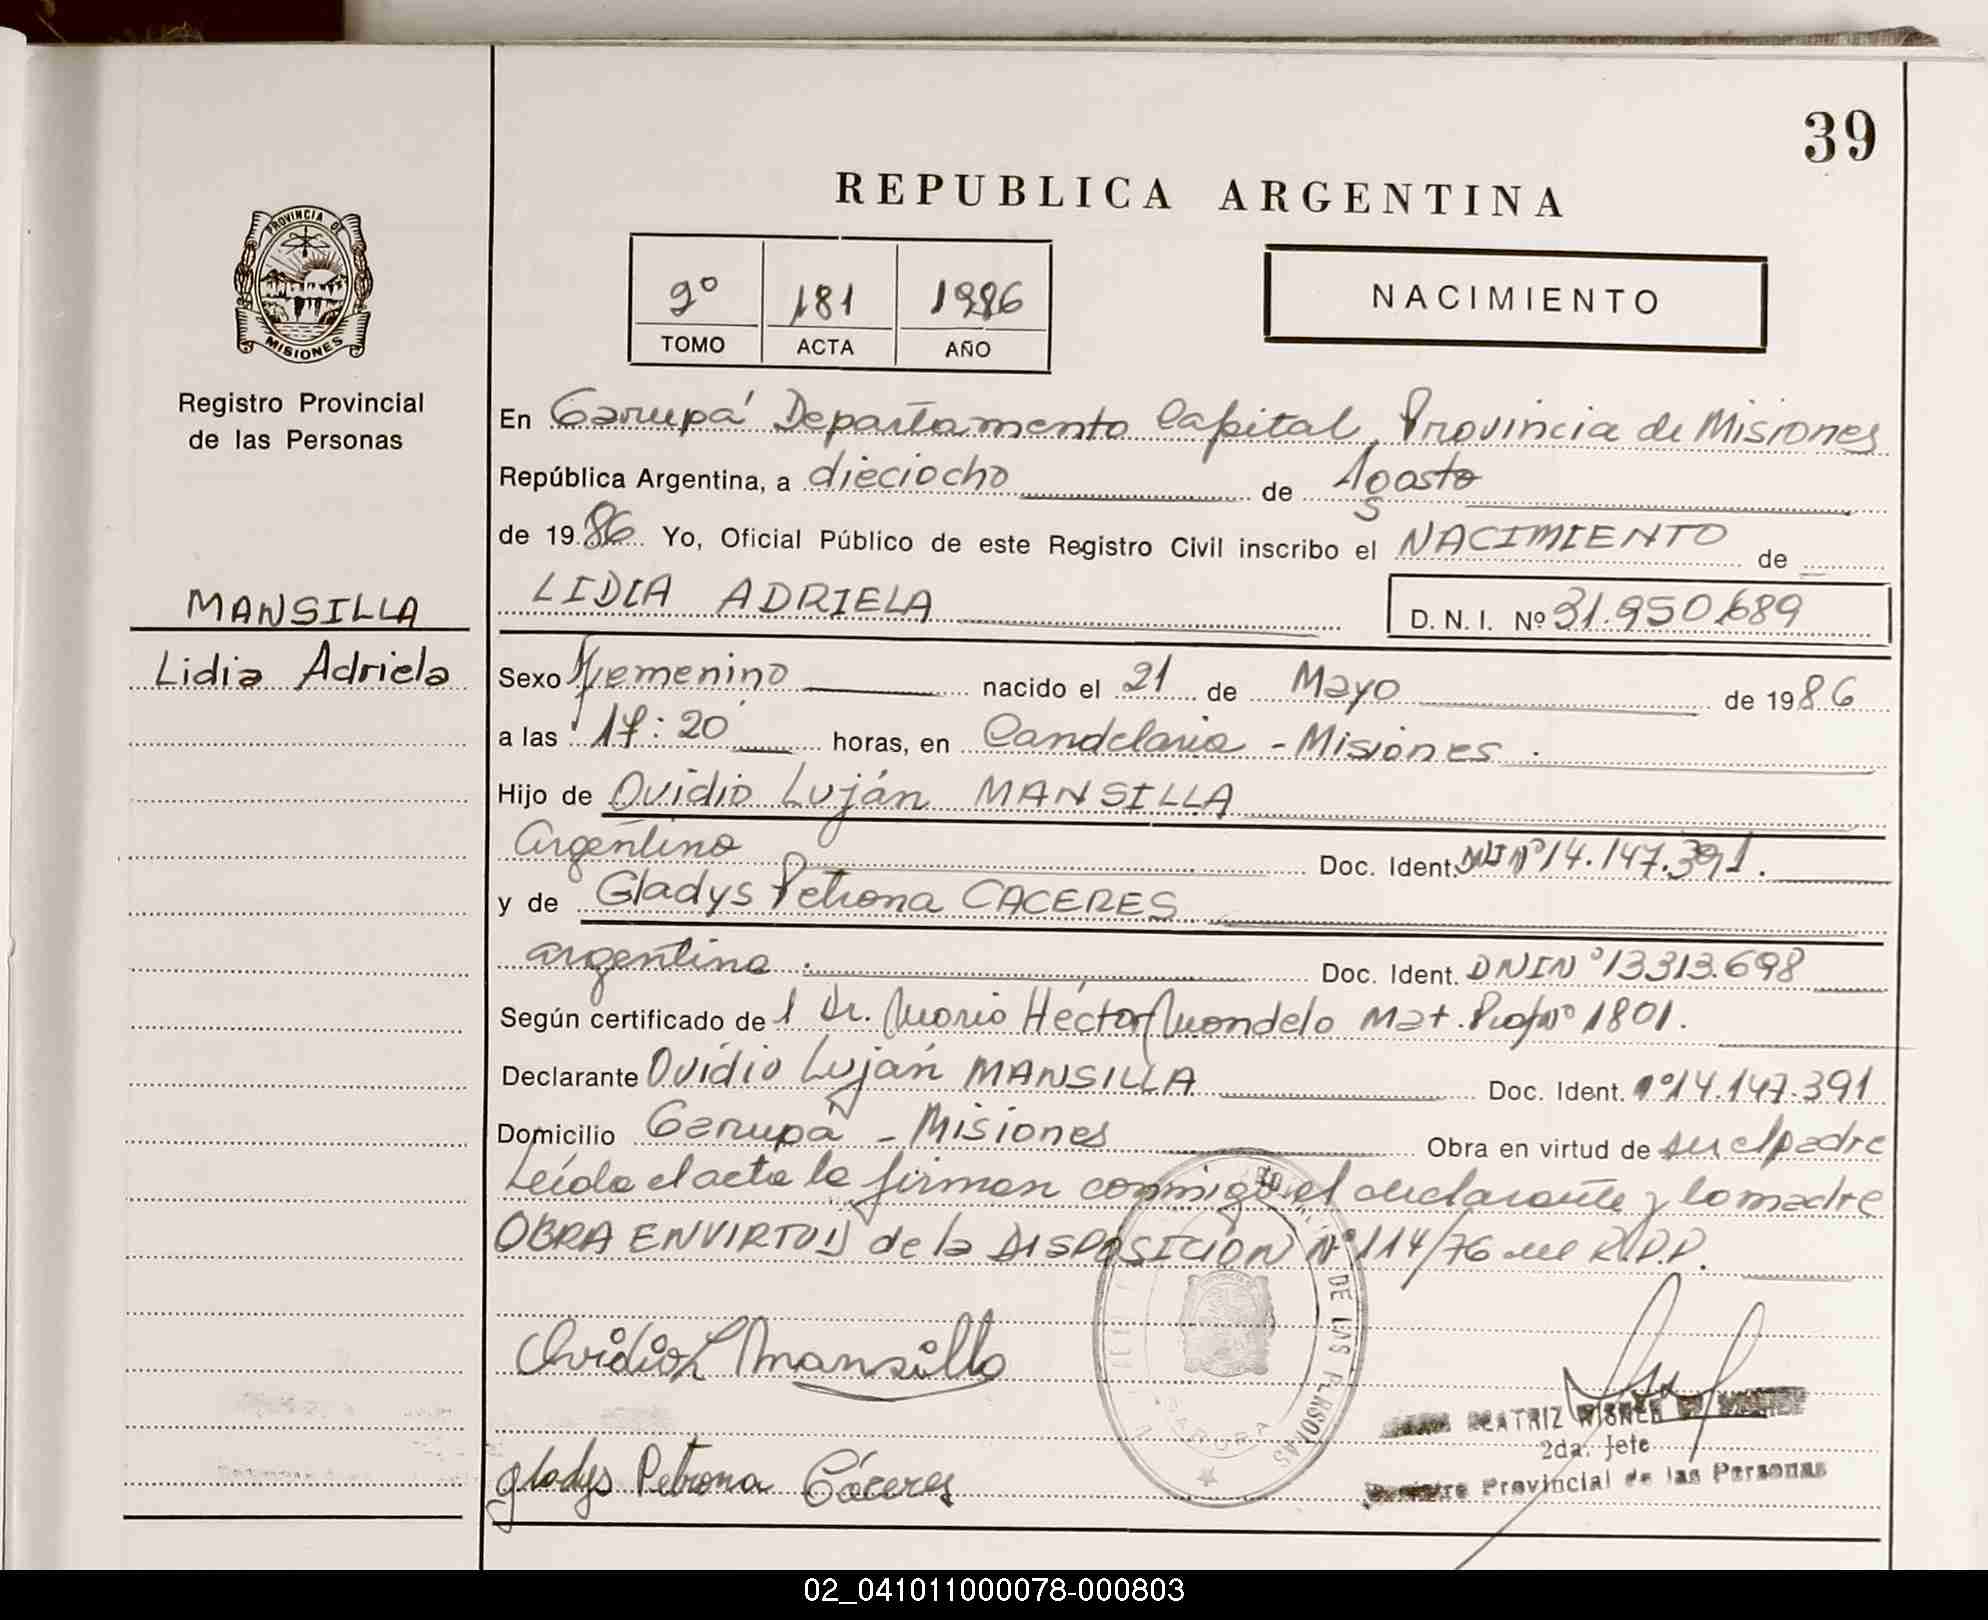 39
REPUBLICA ARGENTINA
PROVINCIA DE
MISIONES
Registro Provincial
de las Personas
MANSILLA
Lidia Adriela
2º 181 1986
TOMO ACTA AÑO
NACIMIENTO
En Garupá Departamento Capital, Provincia de Misiones
República Argentina, a dieciocho de Agosto
de 1986 Yo, Oficial Público de este Registro Civil inscribo el NACIMIENTO de
LIDIA ADRIELA D. N. I. Nº 31.950.689
Sexo femenino nacido el 21 de Mayo de 1986
a las 17:20 horas, en Candelaria - Misiones.
Hijo de Ovidio Luján MANSILLA
argentino Doc. Ident. DNI Nº 14.147.391.
y de Gladys Petrona CACERES
argentina. Doc. Ident. DNI Nº 13313.698
Según certificado del Dr. Mario Héctor Mondelo Mat. Prof Nº 1801.
Declarante Ovidio Luján MANSILLA Doc. Ident. Nº 14.147.391
Domicilio Garupa - Misiones Obra en virtud de ser el padre
Leída el acta la firman conmigo el declarante y la madre
OBRA EN VIRTUD de la DISPOSICION Nº 114/76 del R.P.P.
DE LAS PERSONAS
GARUPA
Ovidio L Mansilla
BEATRIZ WISNER DE
2da. Jefe
Registro Provincial de las Personas
Gladys Petrona Cáceres
02_041011000078-000803